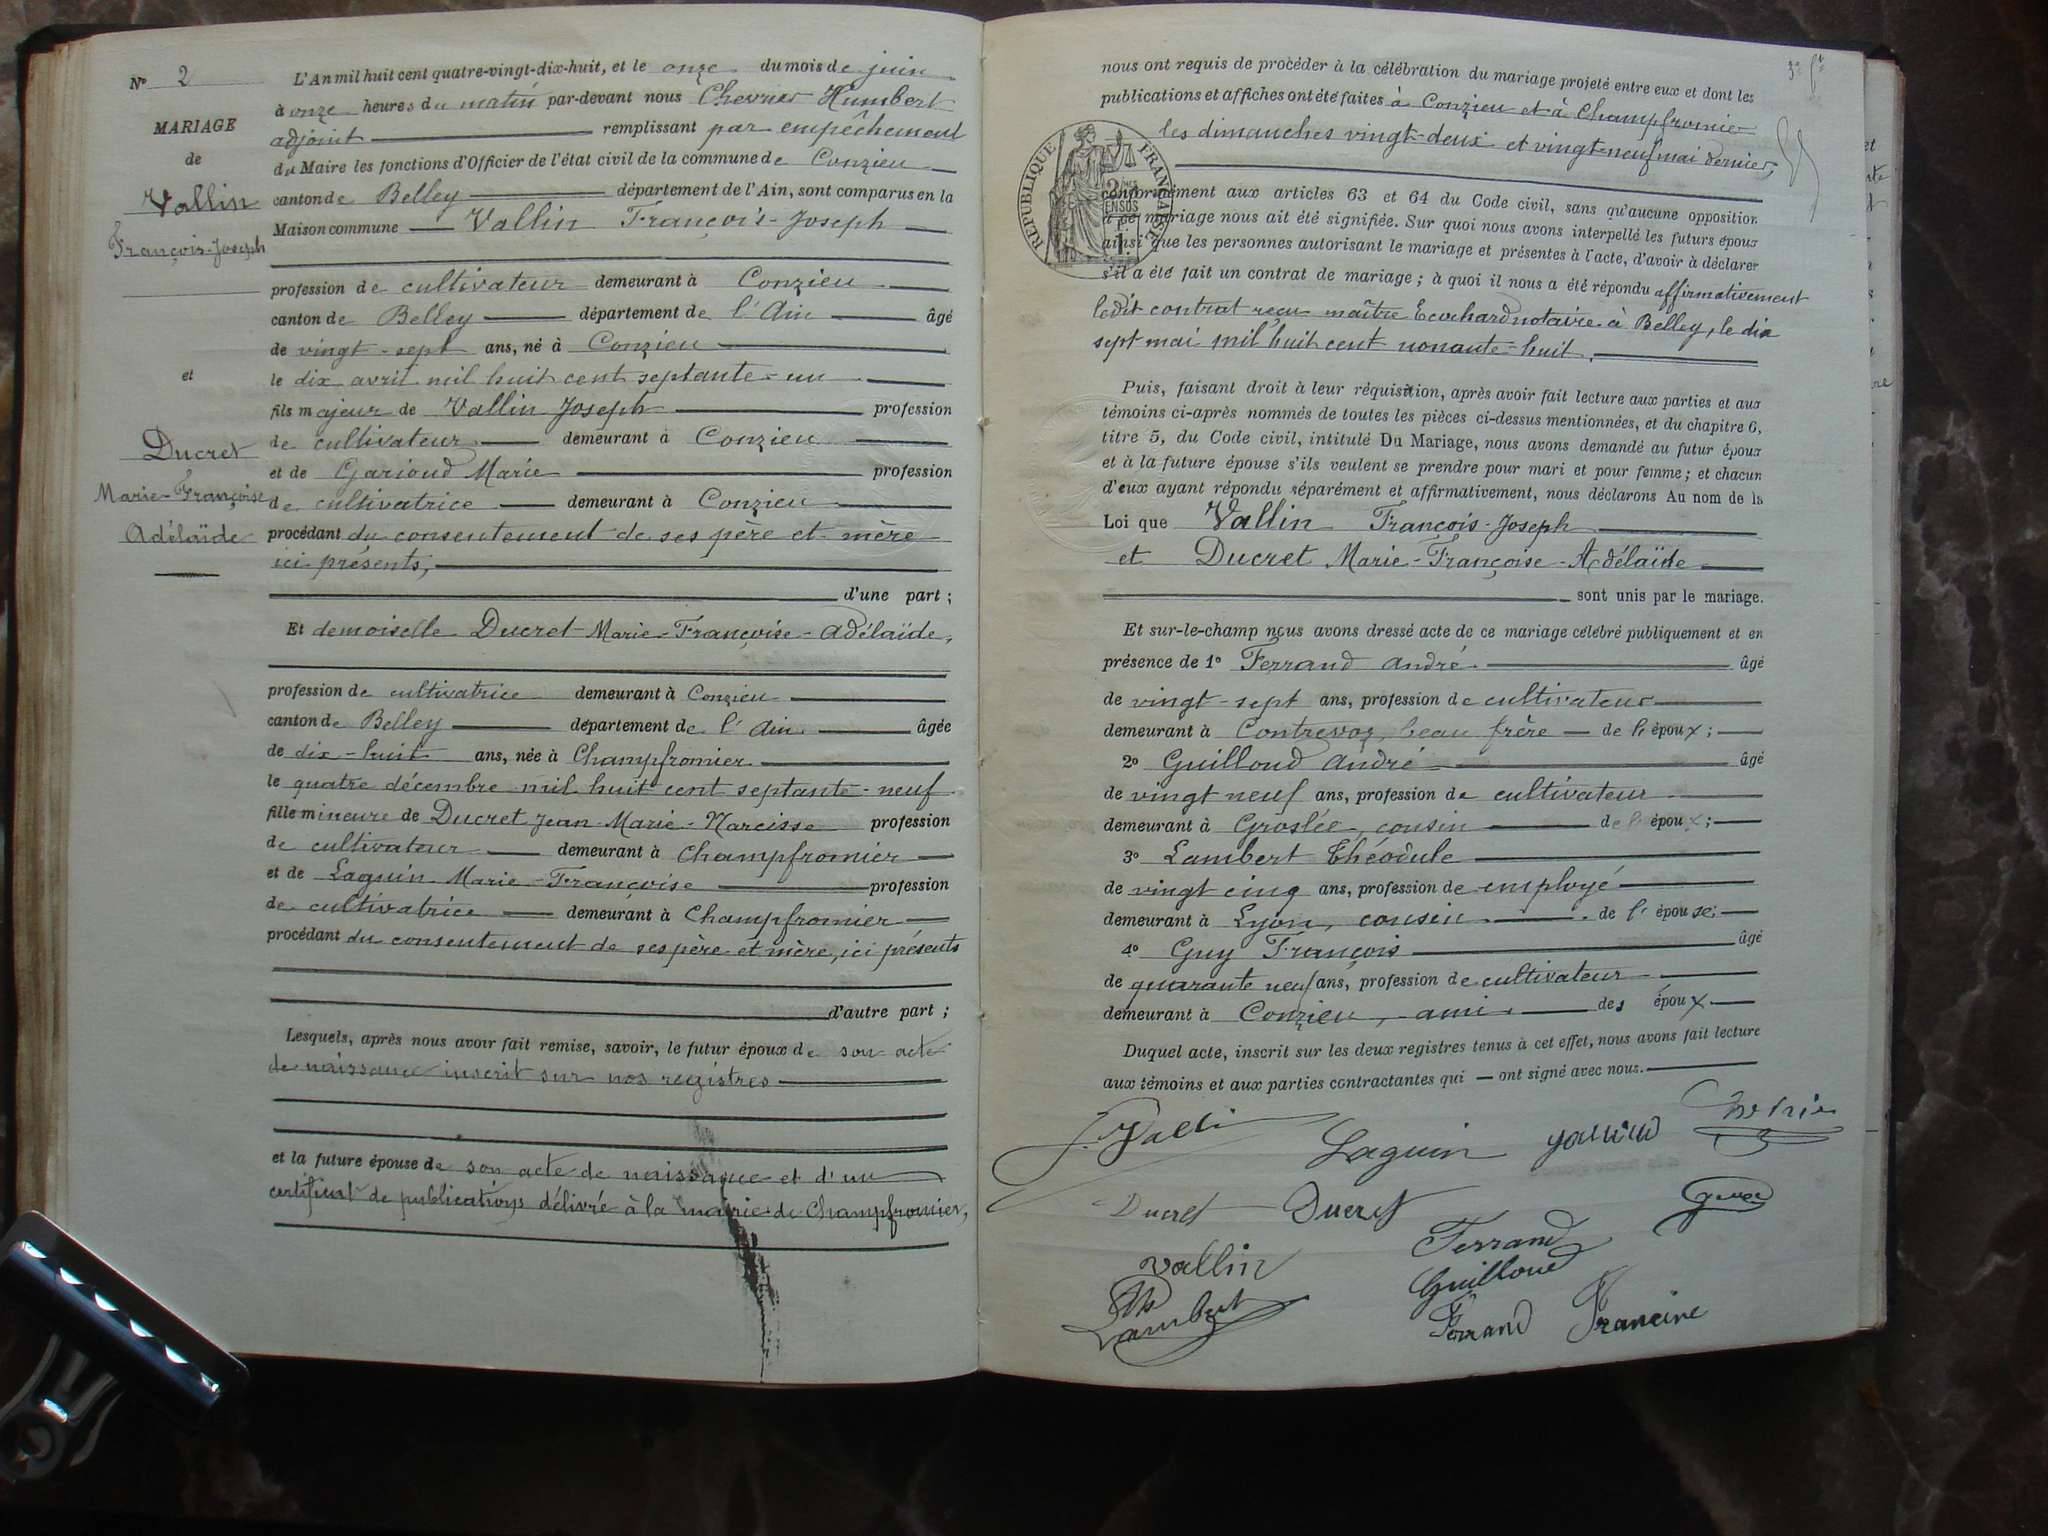 Nº 2
MARIAGE
de
Vallin
François-Joseph
et
Ducret
Marie-Françoise
Adélaïde
L'An mil huit cent quatre-vingt-dix-huit, et le onze du mois de juin
à onze heures du matin par-devant nous Chevrier Humbert
adjoint remplissant par empêchement
du Maire les fonctions d'Officier de l'état civil de la commune de Conzieu
canton de Belley département de l'Ain, sont comparus en la
Maison commune Vallin François-Joseph
profession de cultivateur demeurant à Conzieu
canton de Belley département de l'Ain âgé
de vingt-sept ans, né à Conzieu
le dix avril mil huit cent septante-un
fils majeur de Vallin Joseph profession
de cultivateur demeurant à Conzieu
et de Garioud Marie profession
de cultivatrice demeurant à Conzieu
procédant du consentement de ses père et mère
ici présents,
d'une part ;
Et demoiselle Ducret Marie-Françoise-Adélaïde,
profession de cultivatrice demeurant à Conzieu
canton de Belley département de l'Ain âgée
de dix-huit ans, née à Champfromier
le quatre décembre mil huit cent septante-neuf
fille mineure de Ducret Jean-Marie-Narcisse profession
de cultivateur demeurant à Champfromier
et de Laguin Marie-Françoise profession
de cultivatrice demeurant à Champfromier
procédant du consentement de ses père et mère, ici présents
d'autre part ;
Lesquels, après nous avoir fait remise, savoir, le futur époux de son acte
de naissance inscrit sur nos registres
et la future épouse de son acte de naissance et d'un
certificat de publications délivré à la mairie de Champfromier,
nous ont requis de procéder à la célébration du mariage projeté entre eux et dont les
publications et affiches ont été faites à Conzieu et à Champfromier
les dimanches vingt-deux et vingt-neuf mai dernier,
RÉPUBLIQUE FRANÇAISE
conformément aux articles 63 et 64 du Code civil, sans qu'aucune opposition
à ce mariage nous ait été signifiée. Sur quoi nous avons interpellé les futurs époux
ainsi que les personnes autorisant le mariage et présentes à l'acte, d'avoir à déclarer
s'il a été fait un contrat de mariage ; à quoi il nous a été répondu affirmativement
ledit contrat reçu maître notaire à Belley, le dix
sept mai mil huit cent nonante-huit.
Puis, faisant droit à leur réquisition, après avoir fait lecture aux parties et aux
témoins ci-après nommés de toutes les pièces ci-dessus mentionnées, et du chapitre 6,
titre 5, du Code civil, intitulé Du Mariage, nous avons demandé au futur époux
et à la future épouse s'ils veulent se prendre pour mari et pour femme ; et chacun
d'eux ayant répondu séparément et affirmativement, nous déclarons Au nom de la
Loi que Vallin François-Joseph
et Ducret Marie-Françoise-Adélaïde
sont unis par le mariage.
Et sur-le-champ nous avons dressé acte de ce mariage célébré publiquement et en
présence de 1º Ferrand André âgé
de vingt-sept ans, profession de cultivateur
demeurant à Contrevoz, beau frère de l'époux ;
2º Guilloud André âgé
de vingt neuf ans, profession de cultivateur
demeurant à Groslée, cousin de l'époux ;
3º Lambert Théodule
de vingt cinq ans, profession de employé
demeurant à Lyon, cousin de l'épouse ;
4º Guy François âgé
de quarante neuf ans, profession de cultivateur
demeurant à Conzieu, ami des époux
Duquel acte, inscrit sur les deux registres tenus à cet effet, nous avons fait lecture
aux témoins et aux parties contractantes qui ont signé avec nous.
Laguin
Ducret Ducret
Vallin Ferrand
Guilloud
Lambert
Ferrand Francine